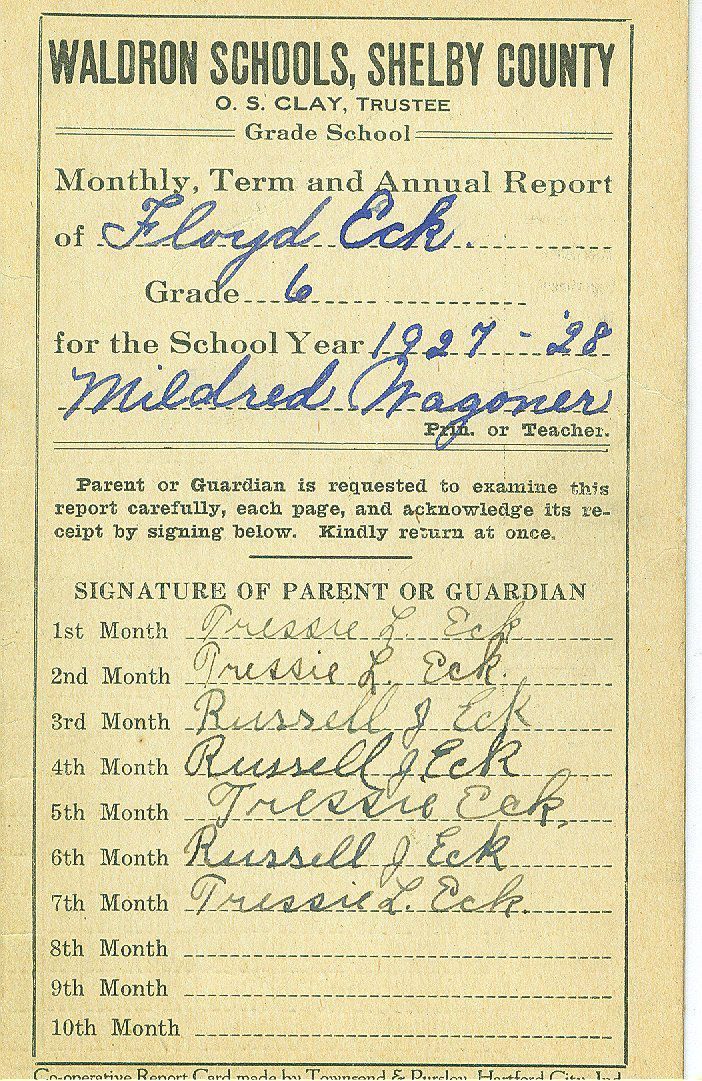 WALDRON SCHOOLS, SHELBY COUNTY
O. S. CLAY, TRUSTEE
Grade School
Monthly, Term and Annual Report
of Floyd Eck.
Grade 6
for the School Year 1927 - '28
Mildred Wagoner
Prin. or Teacher.
Parent or Guardian is requested to examine this
report carefully, each page, and acknowledge its re-
ceipt by signing below. Kindly return at once.
SIGNATURE OF PARENT OR GUARDIAN
1st Month Tressie L. Eck
2nd Month Tressie L. Eck.
3rd Month Russell J Eck
4th Month Russell J. Eck
5th Month Tressie Eck.
6th Month Russell J Eck
7th Month Tressie L. Eck.
8th Month
9th Month
10th Month
Co-operative Report Card made by Townsend & Pursley, Hartford City, Ind.